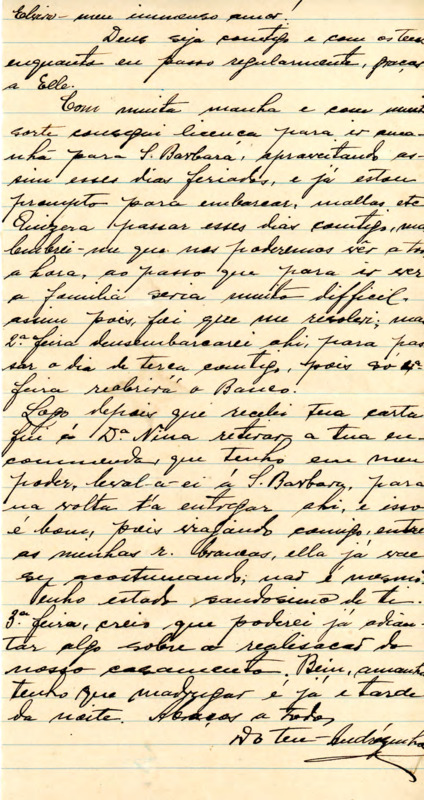 Elviro - meu immenso amor!
Deus seja comtigo e com os teus
enquanto eu passo regularmente, graças
a Elle.
Com muita manha e com muita
sorte consegui licença para ir ama-
nhã para S. Barbara, aproveitando as-
sim esses dias feriados, e já estou
prompto para embarcar, mallas etc
Quizera passar esses dias comtigo, mas
lembrei-me que nos poderemos vêr a toda
a hora, ao passo que para ir ver
a familia seria muito difficil.
assim pois, foi que me resolvi; mas
2ª feira desembarcarei ahi, para pas-
sar o dia de terça comtigo, pois só 4ª
feira reabrirá o Banco.
Logo depois que recebi tua carta
fui á Dª Nina retirar a tua en-
commenda, que tenho em meu
poder, leval-a-ei á S. Barbara, para
na volta t'a entregar ahi, e isso
é bom, pois viajando comigo, entre
as minhas r. brancas, ella já vae
se acostumando; não é mesmo
Tenho estado saudosissimo de ti.
3ª feira, creio que poderei já adian-
tar algo sobre a realisação do
nosso casamento. Bem, amanhã
tenho que madrugar e já é tarde
da noite. Abraços a todos
Do teu - Andrézinho